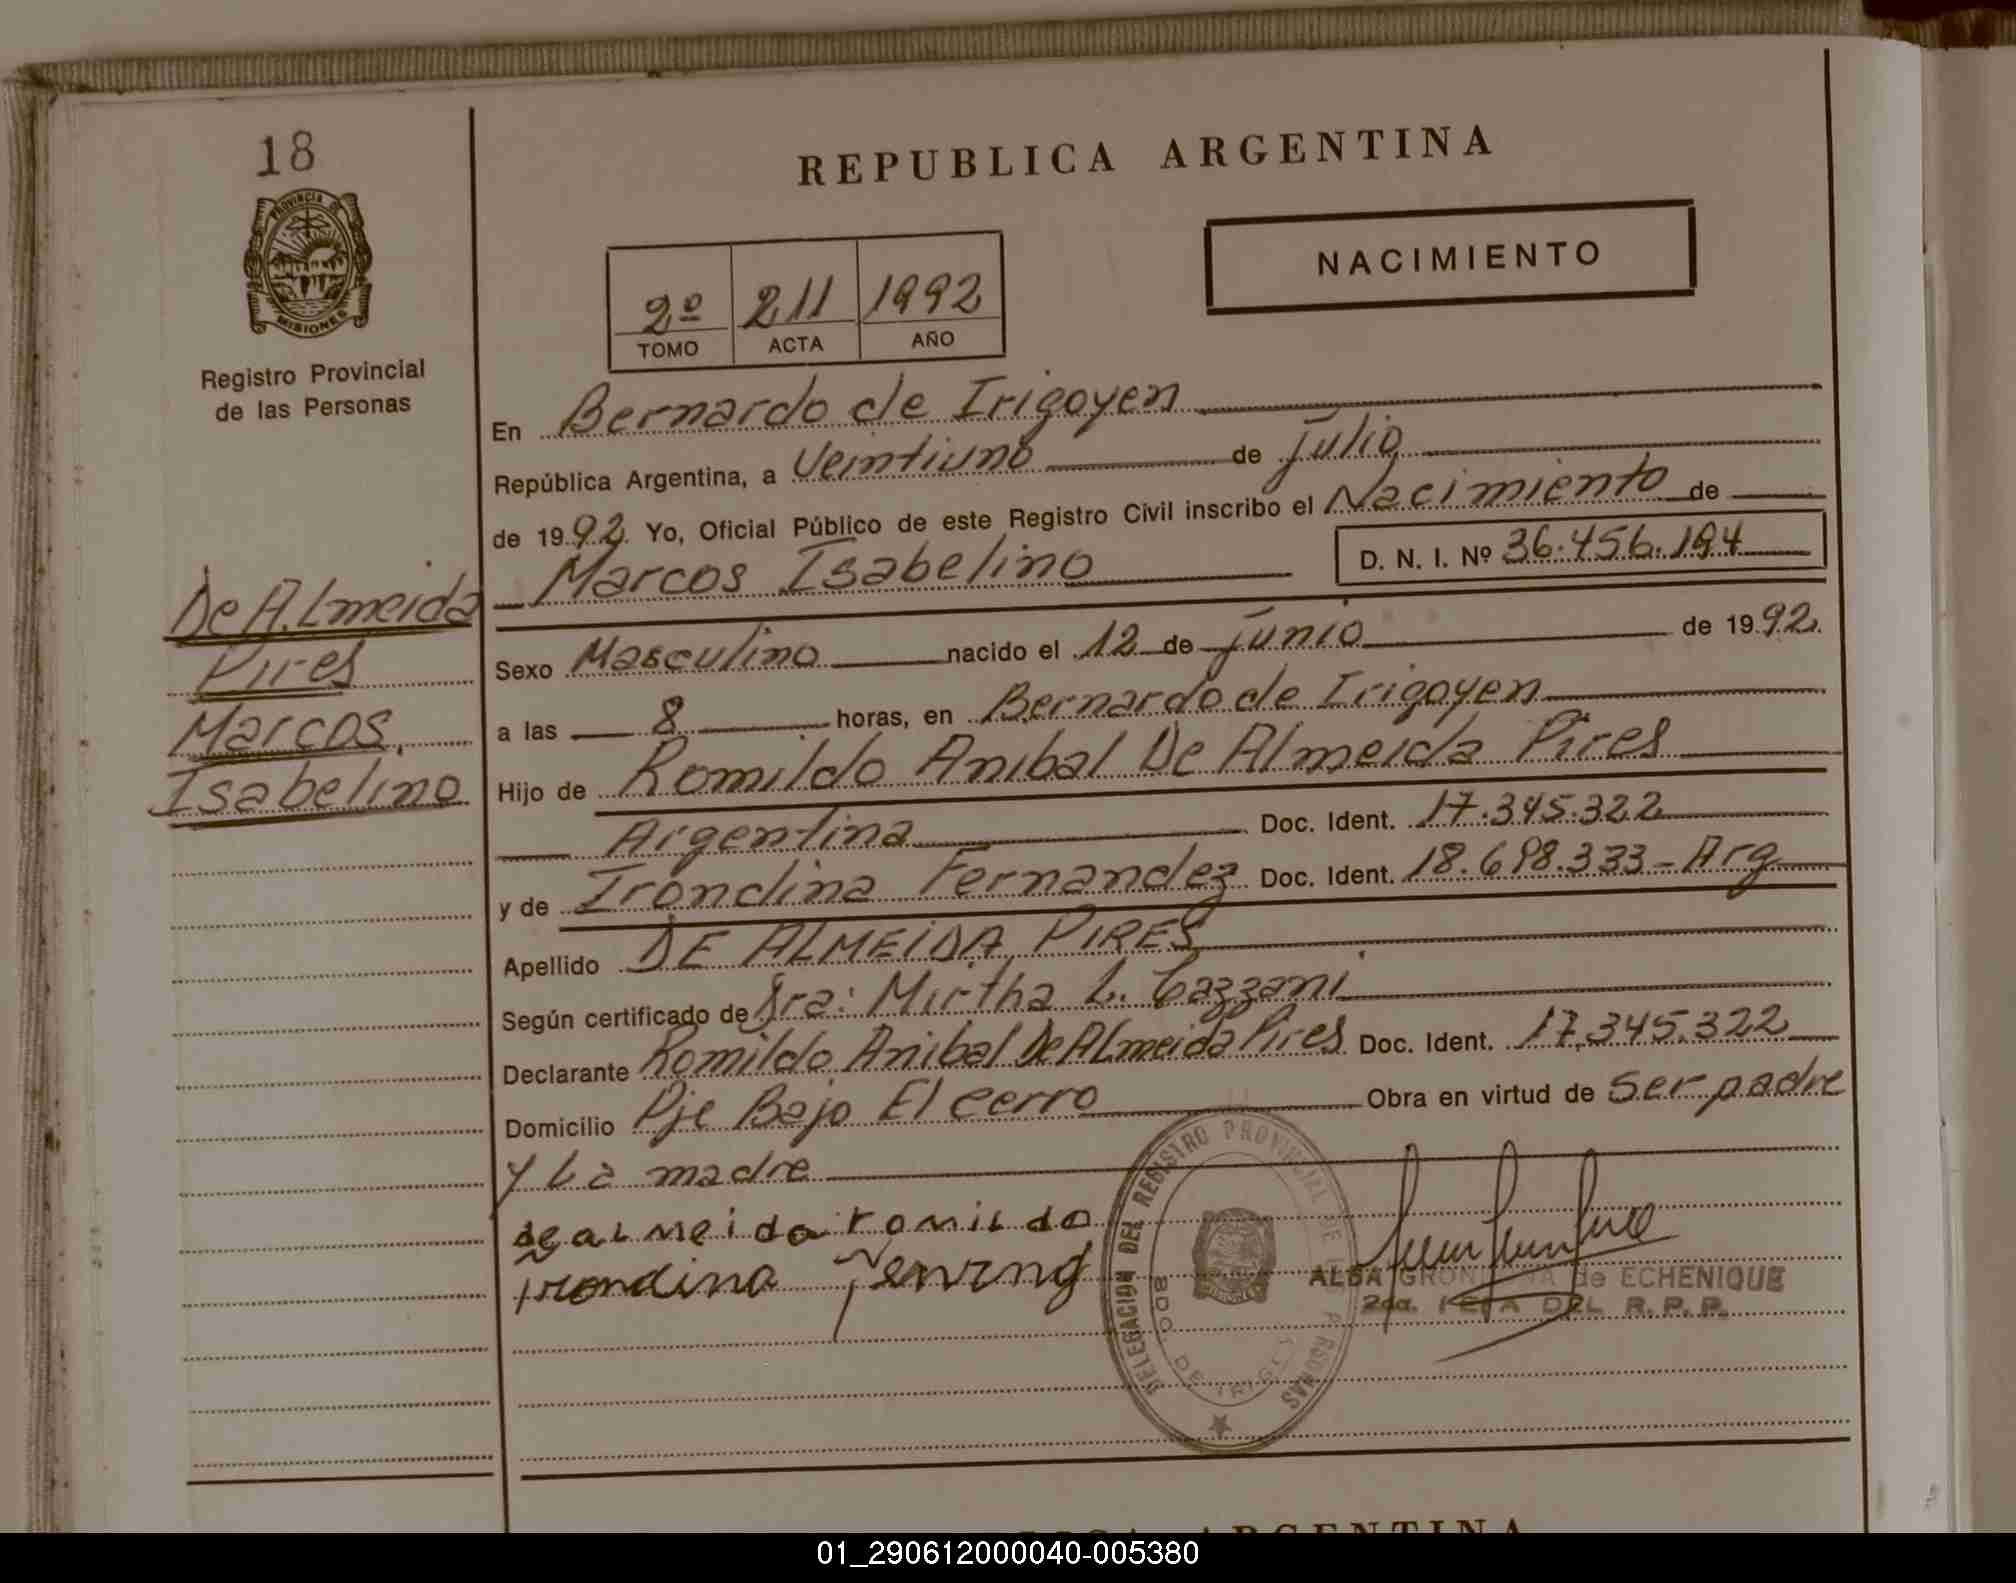 18
REPUBLICA ARGENTINA
PROVINCIA DE
MISIONES
Registro Provincial
de las Personas
NACIMIENTO
2º 211 1992
TOMO ACTA AÑO
De A.Lmeida
Pires
Marcos
Isabelino
En Bernardo de Irigoyen
República Argentina, a Veintiuno de Julio
de 1992 Yo, Oficial Público de este Registro Civil inscribo el Nacimiento de
Marcos Isabelino D. N. I. Nº 36.456.194
Sexo Masculino nacido el 12 de Junio de 1992.
a las 8 horas, en Bernardo de Irigoyen
Hijo de Romildo Anibal De Almeida Pires
Argentina Doc. Ident. 17.345.322
y de Irondina Fernandez Doc. Ident. 18.698.333-Arg
Apellido DE ALMEIDA PIRES
Según certificado de Dra: Mirtha L. Cazzani
Declarante Romildo Anibal De ALmeida Pires Doc. Ident. 17.345.322
Domicilio Pje Bajo El Cerro Obra en virtud de Ser padre
y La madre
de aLmeida romiLdo
irondina
DELEGACION DEL REGISTRO PROVINCIAL DE LAS PERSONAS
BDO. DE IRIGEY
ALBA de ECHENIQUE
2da. JEFA DEL R. P. P.
ARGENTINA
01_290612000040-005380